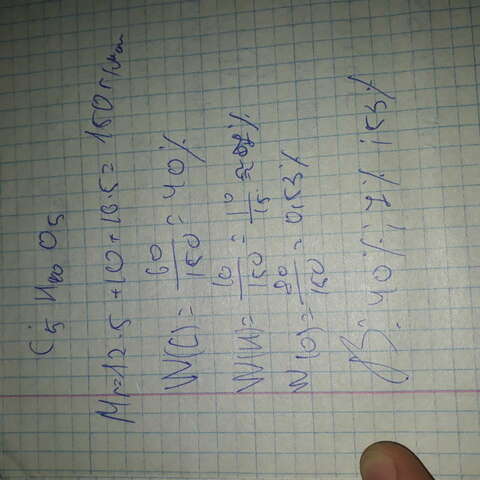 C5 H10 O5
Mr=12·5+10+16·5=150 г/моль
W(C)= 60/150 = 40%
W(H)= 10/150 = 1/15 ≈ 7%
W(O)= 80/150 = 0,53%
40%; 7%; 53%